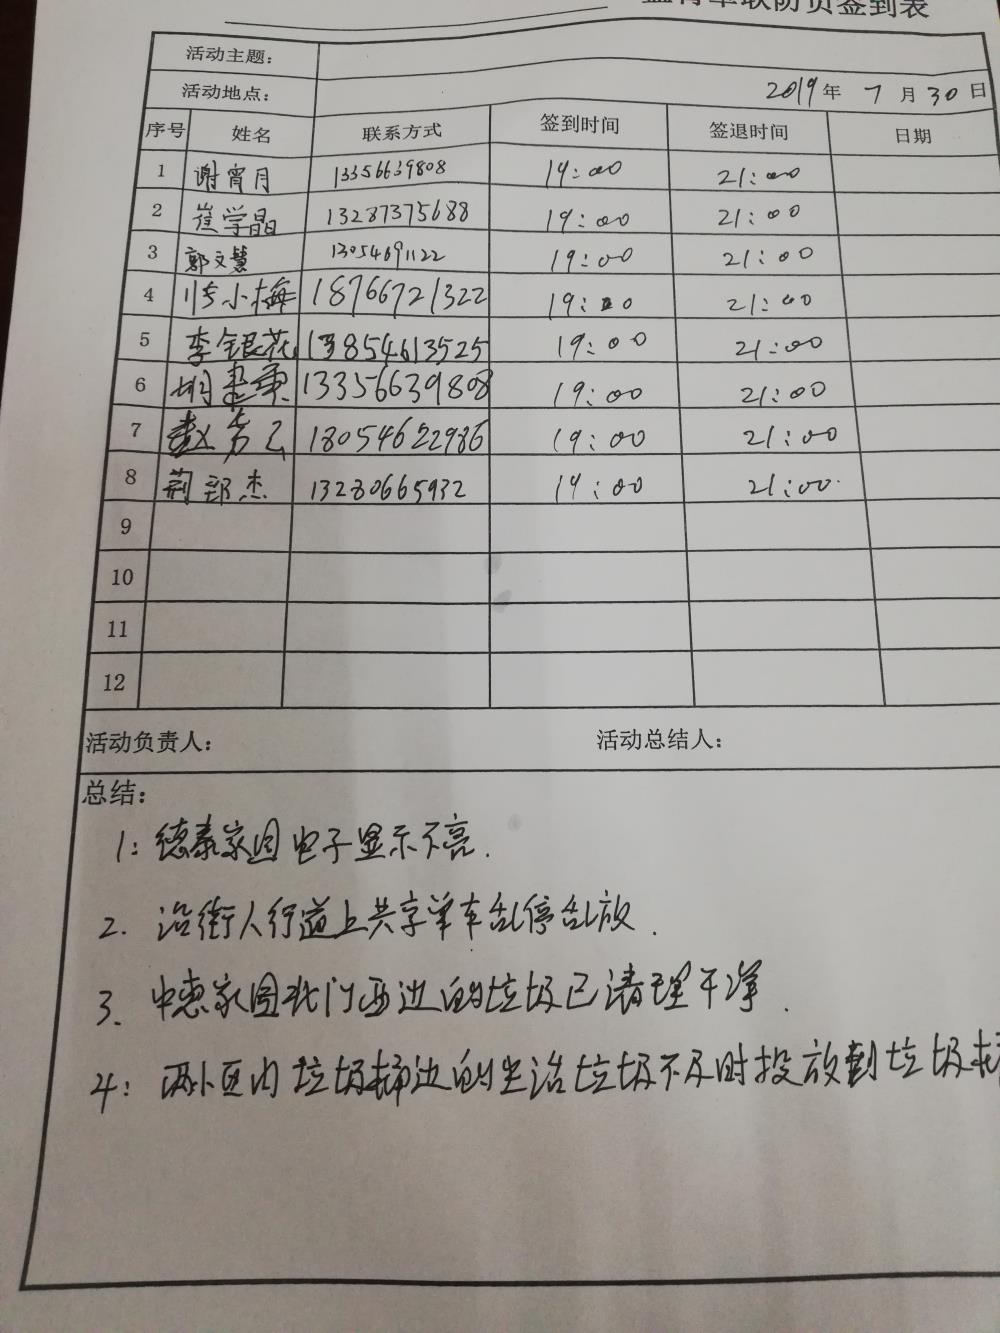 联防员签到表
活动主题：
活动地点： 2019年 7月30日
序号 姓名 联系方式 签到时间 签退时间 日期
1 谢宵月 13356639808 19:00 21:00
2 崔学晶 13287375688 19:00 21:00
3 郭文慧 13054691122 19:00 21:00
4 许小梅 18766721322 19:00 21:00
5 李银花 13854613525 19:00 21:00
6 胡建东 13356639808 19:00 21:00
7 赵芳云 18054622986 19:00 21:00
8 荆郅杰 13280665932 19:00 21:00
9
10
11
12
活动负责人： 活动总结人：
总结：
1：德泰家园电子显示不亮.
2. 沿街人行道上共享单车乱停乱放.
3. 中惠家园北门西边的垃圾已清理干净.
4：两小区内垃圾桶边的生活垃圾不及时投放到垃圾